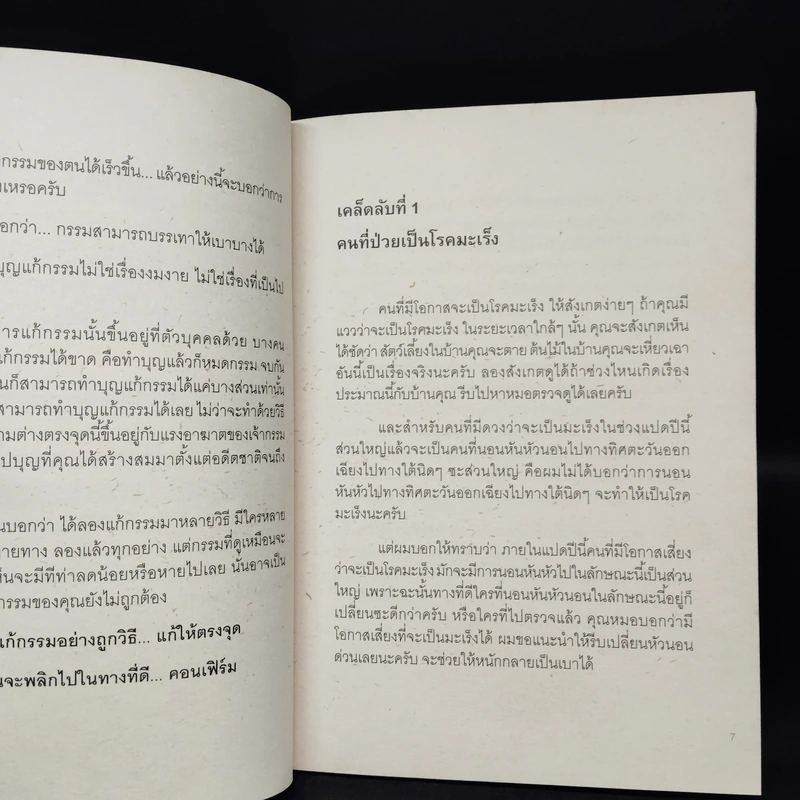 กรรมของตนได้เร็วขึ้น... แล้วอย่างนี้จะบอกว่าการ
เหรอครับ
อกว่า... กรรมสามารถบรรเทาให้เบาบางได้
บุญแก้กรรมไม่ใช่เรื่องงมงาย ไม่ใช่เรื่องที่เป็นไป
การแก้กรรมนั้นขึ้นอยู่ที่ตัวบุคคลด้วย บางคน
แก้กรรมได้ขาด คือทำบุญแล้วก็หมดกรรม จบกัน
นก็สามารถทำบุญแก้กรรมได้แค่บางส่วนเท่านั้น
สามารถทำบุญแก้กรรมได้เลย ไม่ว่าจะทำด้วยวิธี
ามต่างตรงจุดนี้ขึ้นอยู่กับแรงอาฆาตของเจ้ากรรม
ปบุญที่คุณได้สร้างสมมาตั้งแต่อดีตชาติจนถึง
นบอกว่า ได้ลองแก้กรรมมาหลายวิธี มีใครหลาย
ายทาง ลองแล้วทุกอย่าง แต่กรรมที่ดูเหมือนจะ
ห็นจะมีทีท่าลดน้อยหรือหายไปเลย นั่นอาจเป็น
กรรมของคุณยังไม่ถูกต้อง
แก้กรรมอย่างถูกวิธี... แก้ให้ตรงจุด
นจะพลิกไปในทางที่ดี... คอนเฟิร์ม
เคล็ดลับที่ 1
คนที่ป่วยเป็นโรคมะเร็ง
คนที่มีโอกาสจะเป็นโรคมะเร็ง ให้สังเกตง่ายๆ ถ้าคุณมี
แววว่าจะเป็นโรคมะเร็ง ในระยะเวลาใกล้ๆ นั้น คุณจะสังเกตเห็น
ได้ชัดว่า สัตว์เลี้ยงในบ้านคุณจะตาย ต้นไม้ในบ้านคุณจะเหี่ยวเฉา
อันนี้เป็นเรื่องจริงนะครับ ลองสังเกตดูได้ถ้าช่วงไหนเกิดเรื่อง
ประมาณนี้กับบ้านคุณ รีบไปหาหมอตรวจดูได้เลยครับ
และสำหรับคนที่มีดวงว่าจะเป็นมะเร็งในช่วงแปดปีนี้
ส่วนใหญ่แล้วจะเป็นคนที่นอนหันหัวนอนไปทางทิศตะวันออก
เฉียงไปทางใต้นิดๆ ซะส่วนใหญ่ คือผมไม่ได้บอกว่าการนอน
หันหัวไปทางทิศตะวันออกเฉียงไปทางใต้นิดๆ จะทำให้เป็นโรค
มะเร็งนะครับ
แต่ผมบอกให้ทราบว่า ภายในแปดปีนี้คนที่มีโอกาสเสี่ยง
ว่าจะเป็นโรคมะเร็ง มักจะมีการนอนหันหัวไปในลักษณะนี้เป็นส่วน
ใหญ่ เพราะฉะนั้นทางที่ดีใครที่นอนหันหัวนอนในลักษณะนี้อยู่ก็
เปลี่ยนซะดีกว่าครับ หรือใครที่ไปตรวจแล้ว คุณหมอบอกว่ามี
โอกาสเสี่ยงที่จะเป็นมะเร็งได้ ผมขอแนะนำให้รีบเปลี่ยนหัวนอน
ด่วนเลยนะครับ จะช่วยให้หนักกลายเป็นเบาได้
7